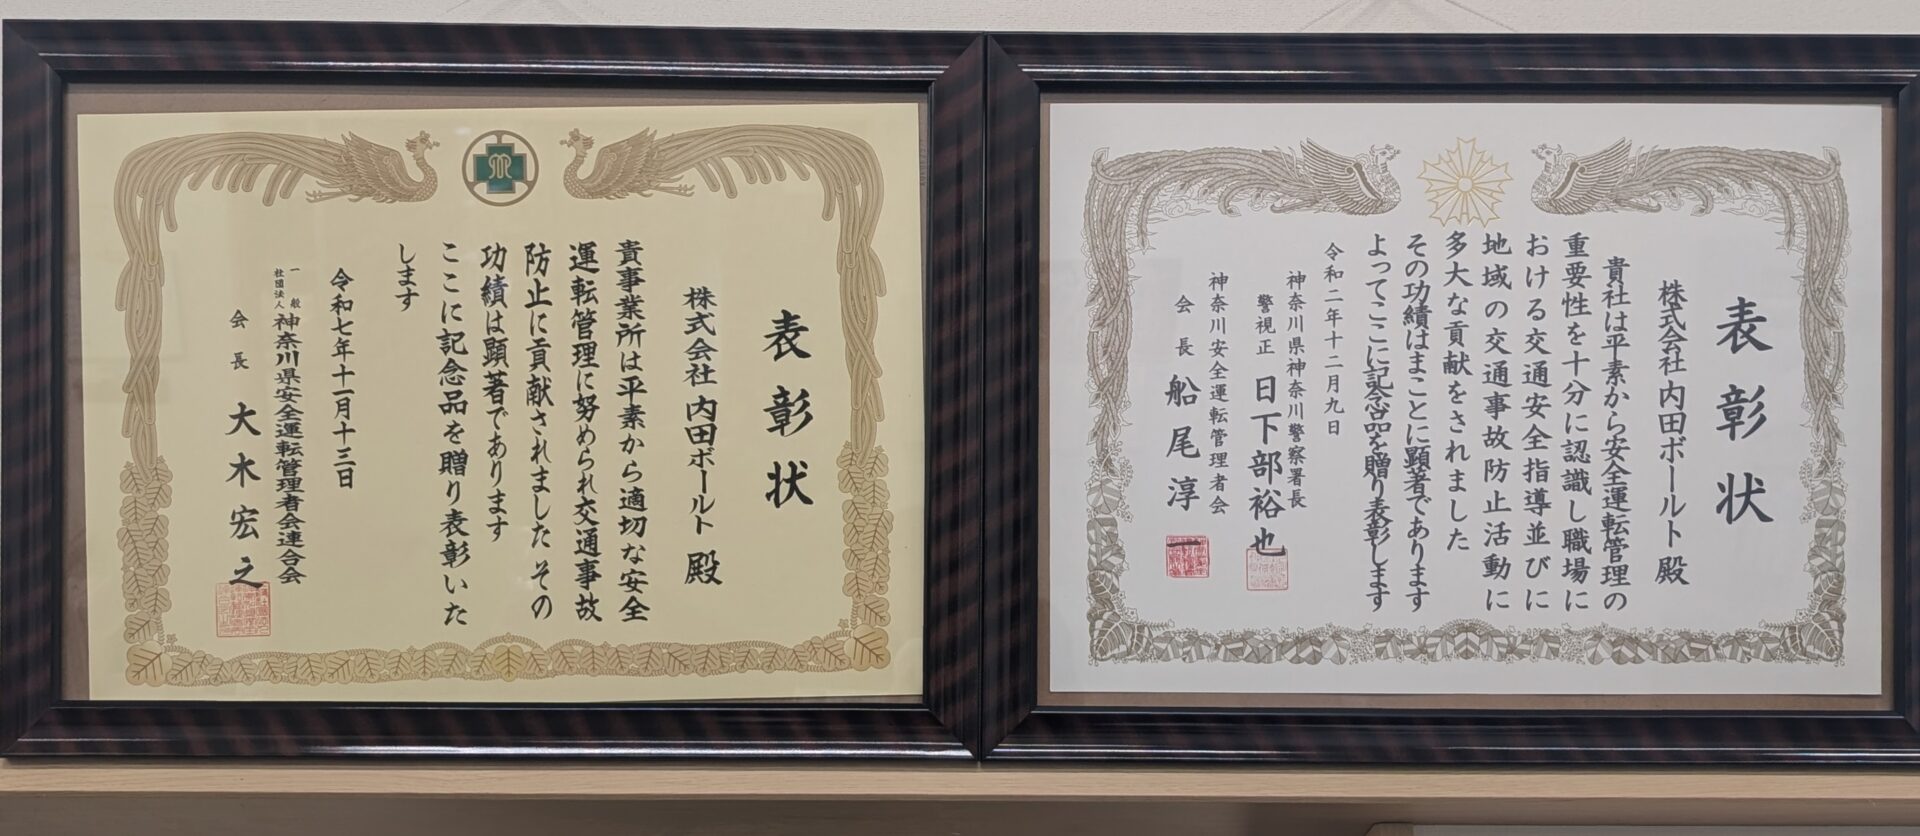 表彰状
株式会社 内田ボールト 殿
貴事業所は平素から適切な安全
運転管理に努められ交通事故
防止に貢献されました その
功績は顕著であります
ここに記念品を贈り表彰いた
します
令和七年十一月十三日
一般社団法人 神奈川県安全運転管理者会連合会
会長 大木宏之
表彰状
株式会社 内田ボールト 殿
貴社は平素から安全運転管理の
重要性を十分に認識し職場に
おける交通安全指導並びに
地域の交通事故防止活動に
多大な貢献をされました
その功績はまことに顕著であります
よってここに記念品を贈り表彰します
令和二年十二月九日
神奈川県神奈川警察署長
警視正 日下部裕也
神奈川安全運転管理者会
会長 船尾淳一